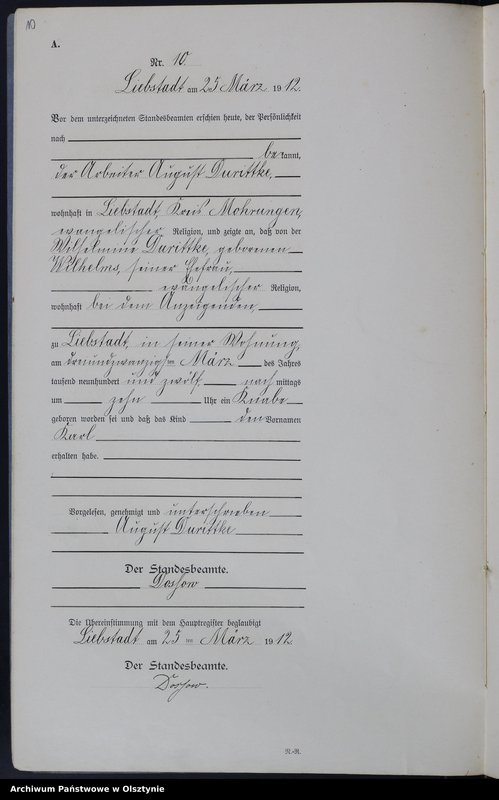 10
A.
Nr. 10.
Liebstadt am 25 März 1912.
Vor dem unterzeichneten Standesbeamten erschien heute, der Persönlichkeit
nach
bekannt,
der Arbeiter August Durittke,
wohnhaft in Liebstadt, Kreis Mohrungen,
evangelischer Religion, und zeigte an, daß von der
Wilhelmine Durittke, geborenen
Wilhelms, seiner Ehefrau,
evangelischer Religion,
wohnhaft bei dem Anzeigenden,
zu Liebstadt, in seiner Wohnung,
am dreiundzwanzigsten März des Jahres
tausend neunhundert und zwölf nachmittags
um zehn Uhr ein Knabe
geboren worden sei und daß das Kind den Vornamen
Karl
erhalten habe.
Vorgelesen, genehmigt und unterschrieben
August Durittke
Der Standesbeamte.
Die Übereinstimmung mit dem Hauptregister beglaubigt
Liebstadt am 25 ten März 1912.
Der Standesbeamte.
N.-R.
Archiwum Państwowe w Olsztynie